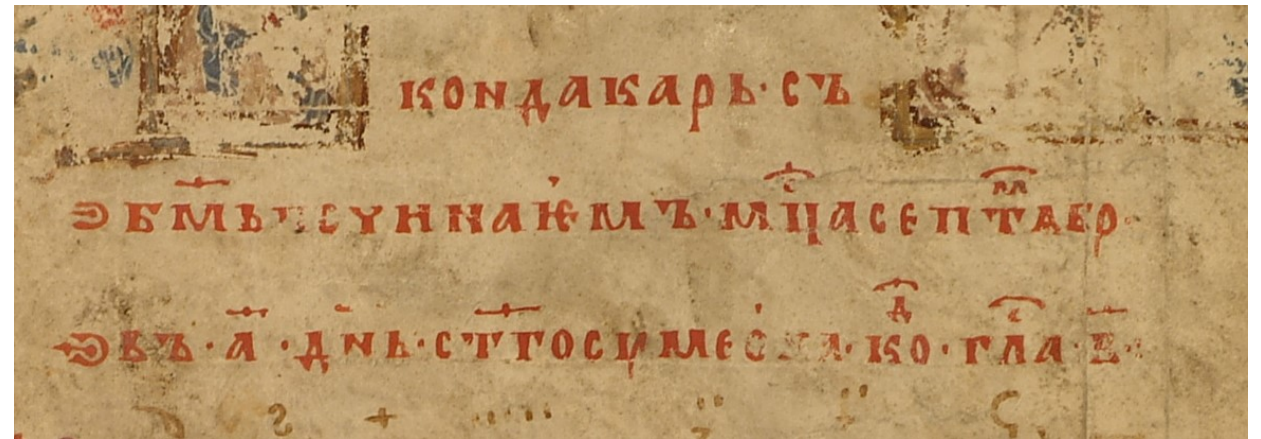 кондакарь · съ
бм҃ь починаѥмъ · мцⷭ҇а септⷨ҇ѧбр ·
въ · а҃ · дн҃ь · ст҃го симеона · коⷣ҇ · глⷭ҇а · в҃ ·